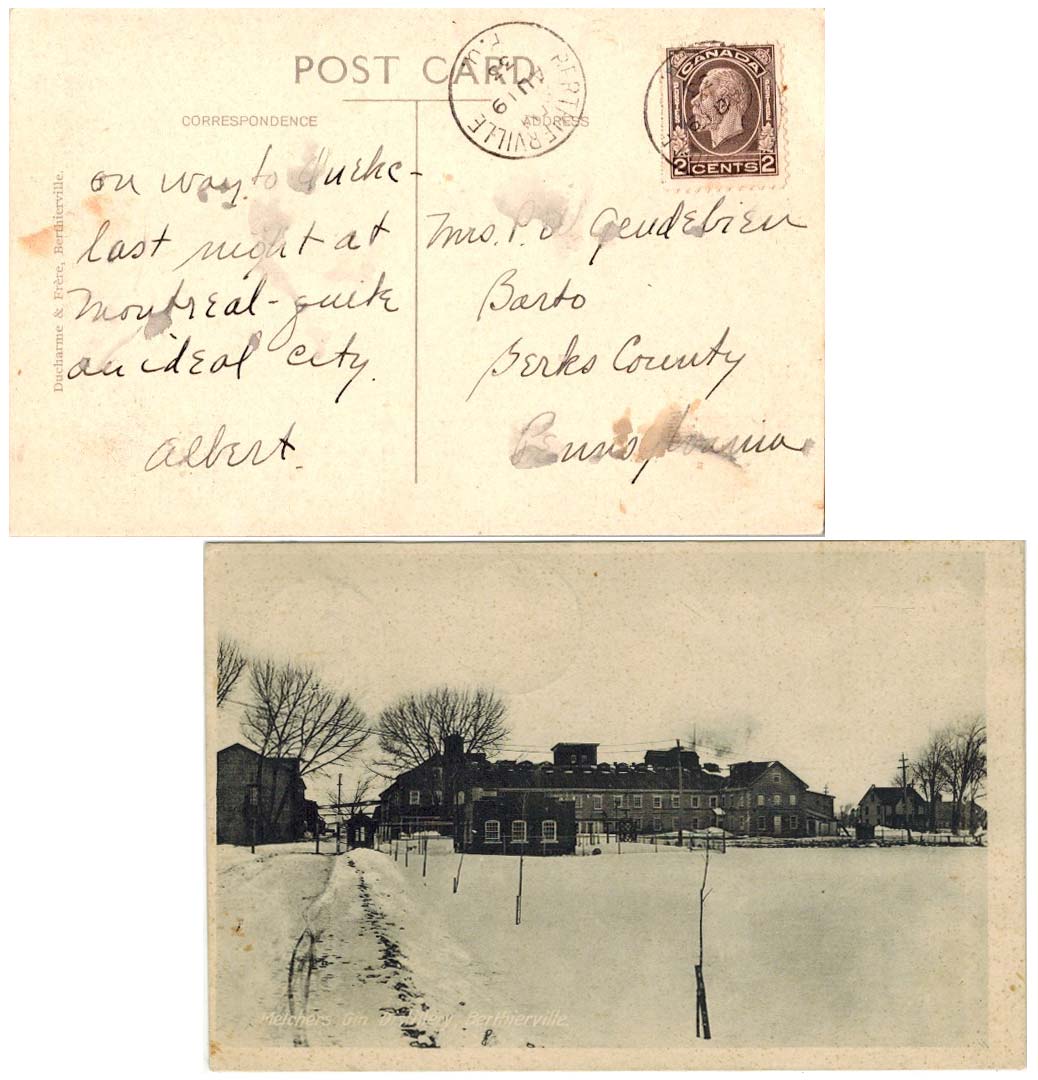 POST CARD
CORRESPONDENCE
ADDRESS
BERTHIERVILLE
P.Q.
AU 19
33
CANADA
POSTES
POSTAGE
2 CENTS 2
on way to Quebc -
last night at
Montreal - quite
an ideal city.
Albert.
Mrs. P. W Gendebien
Barto
Berks County
Pennsylvania
Ducharme & Frère, Berthierville.
Melchers Gin Distillery, Berthierville.